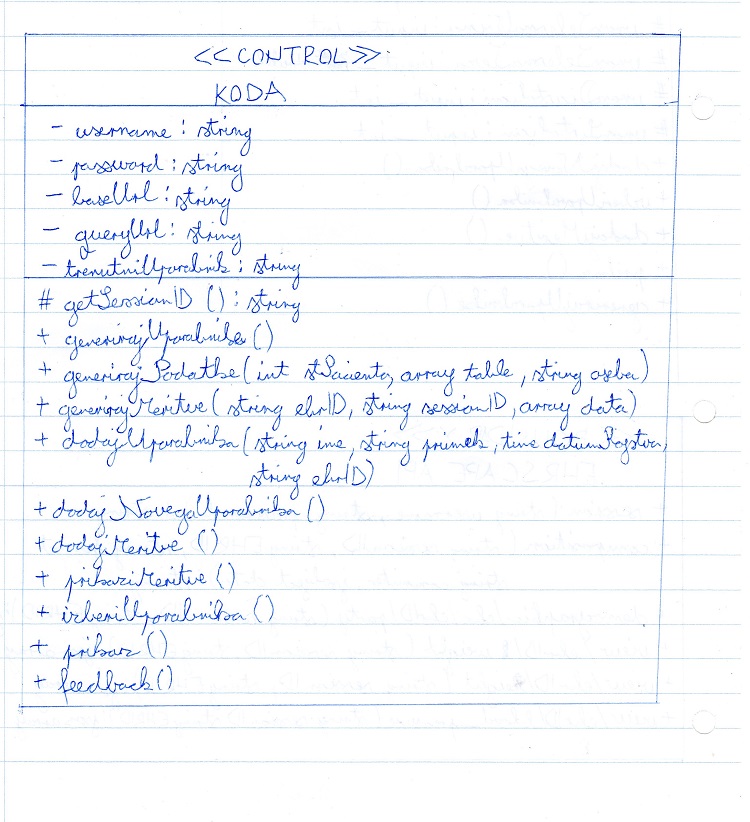 <<CONTROL>>
KODA
- username : string
- password : string
- baseUrl : string
- queryUrl : string
- trenutniUporabnik : string
# getSessionID () : string
+ generirajUporabnike ()
+ generirajPodatke (int stPacienta, array table, string oseba)
+ generirajMeritve (string ehrID, string sessionID, array data)
+ dodajUporabnika (string ime, string priimek, time datumRojstva,
string ehrID)
+ dodajNovegaUporabnika ()
+ dodajMeritve ()
+ prikaziMeritve ()
+ izberiUporabnika ()
+ prikaz ()
+ feedback ()